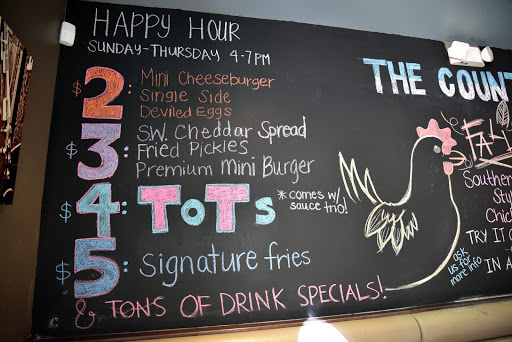 HAPPY HOUR
SUNDAY-THURSDAY 4-7PM
$2: Mini Cheeseburger
Single Side
Deviled Eggs
$3: SW. Cheddar Spread
Fried Pickles
Premium Mini Burger
$4: TOTS *comes w/
sauce trio!
$5: Signature fries
& TONS OF DRINK SPECIALS!
THE COUNT
Southern
Style
Chick
TRY IT O
IN A
ask
us for
more info